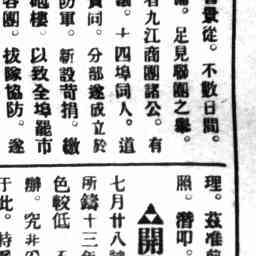 景從。不數日間。
。足見聯團之舉。
着九江商團諸公。有
。十四埠同人。道
責問。分部遂成立於
防軍。新設苛捐。繳
砲樓。以致全埠罷市
各團。拔隊協防。遂
理。茲准前
照。潛叩。
▲開
七月廿八號
所鑄十三年
色較低
辦。究非
于此。特